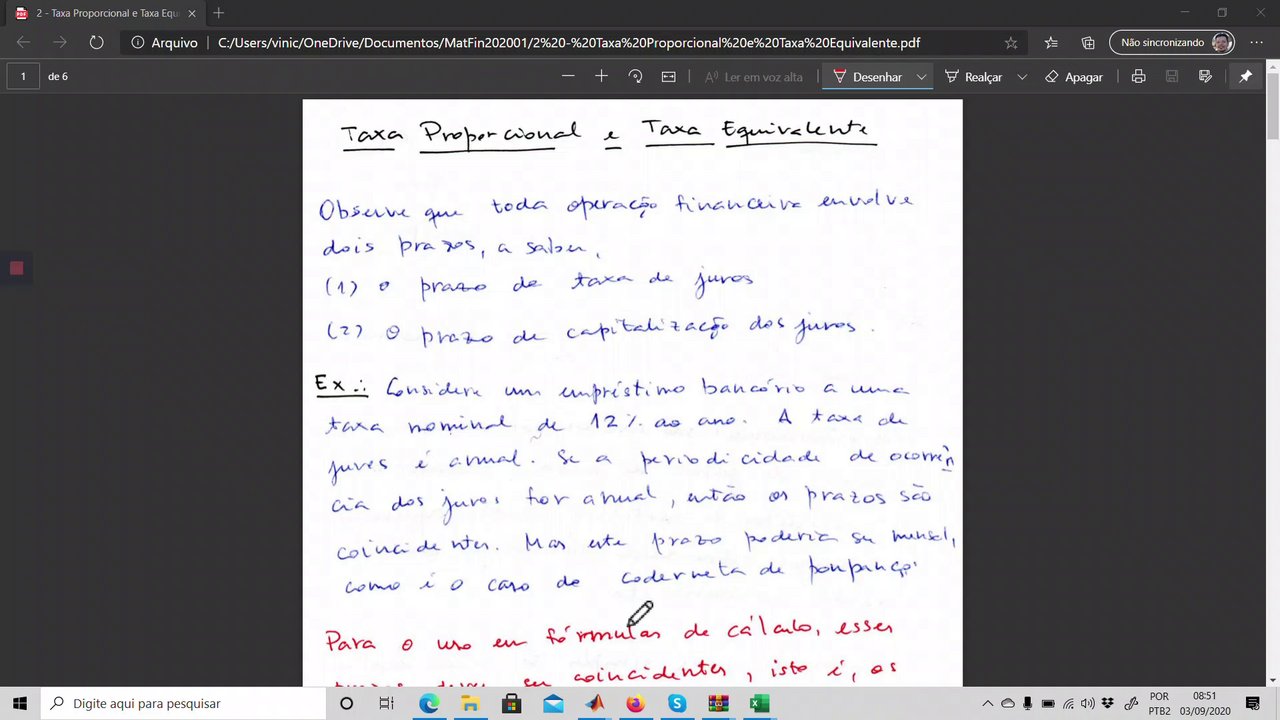 2 - Taxa Proporcional e Taxa Equi
Arquivo C:/Users/vinic/OneDrive/Documentos/MatFin202001/2%20-%20Taxa%20Proporcional%20e%20Taxa%20Equivalente.pdf
Não sincronizando
1 de 6
Ler em voz alta
Desenhar
Realçar
Apagar
Taxa Proporcional e Taxa Equivalente
Observe que toda operação financeira envolve
dois prazos, a saber,
(1) o prazo da taxa de juros
(2) O prazo de capitalização dos juros.
Ex.: Considere um empréstimo bancário a uma
taxa nominal de 12% ao ano. A taxa de
juros é anual. Se a periodicidade de ocorrên
cia dos juros for anual, então os prazos são
coincidentes. Mas este prazo poderia ser mensal,
como é o caso da caderneta de poupança.
Para o uso em fórmulas de cálculo, esses
prazos devem ser coincidentes, isto é, os
Digite aqui para pesquisar
POR
PTB2
08:51
03/09/2020